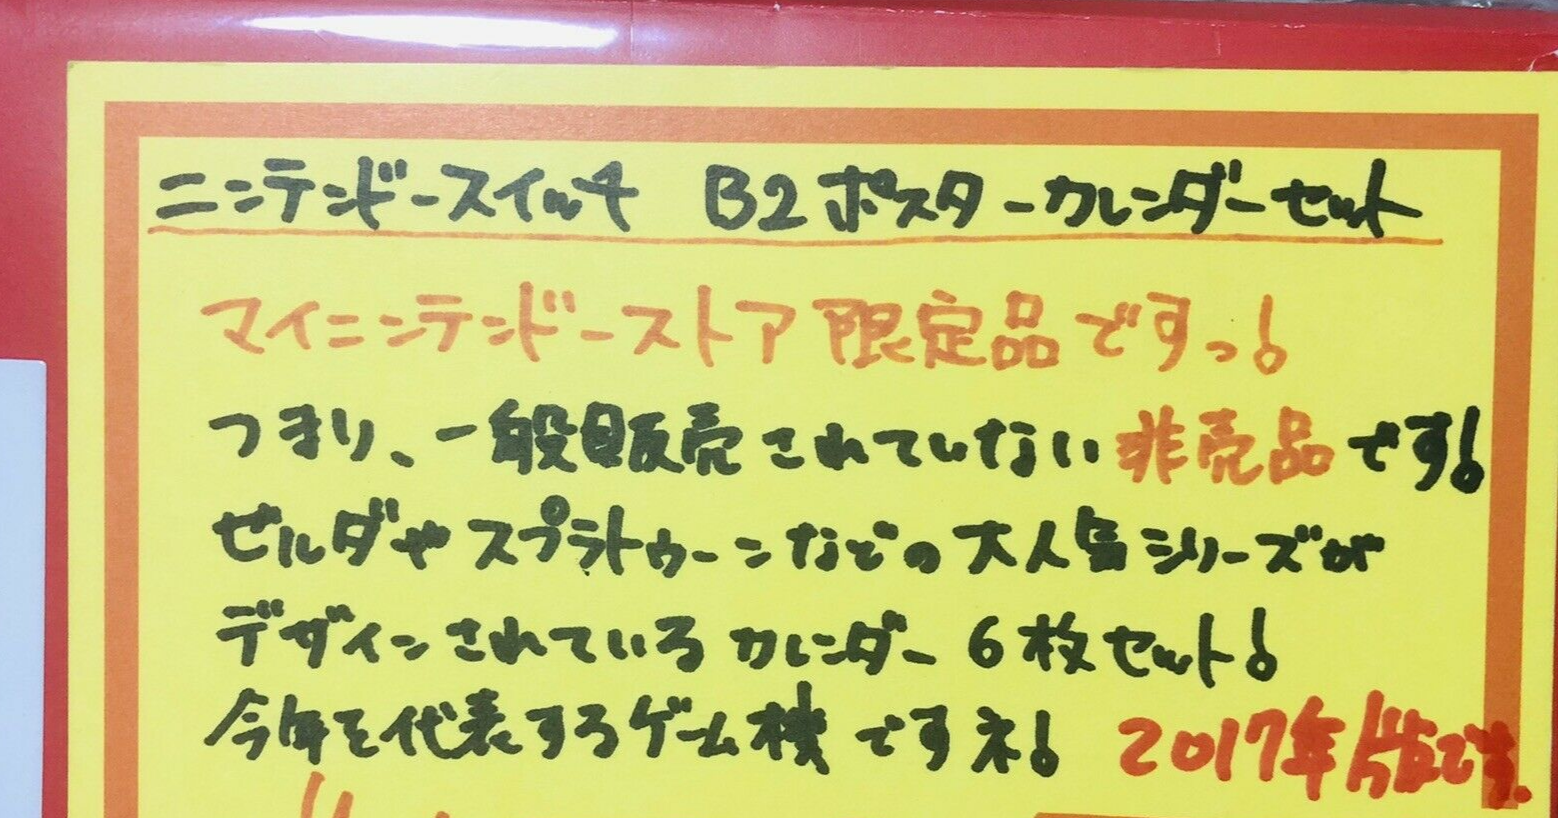 ニンテンドースイッチ B2ポスターカレンダーセット
マイニンテンドーストア限定品ですっ!
つまり、一般販売されていない非売品です!
ゼルダやスプラトゥーンなどの大人気シリーズが
デザインされているカレンダー6枚セット!
今年を代表するゲーム機ですネ! 2017年版です。